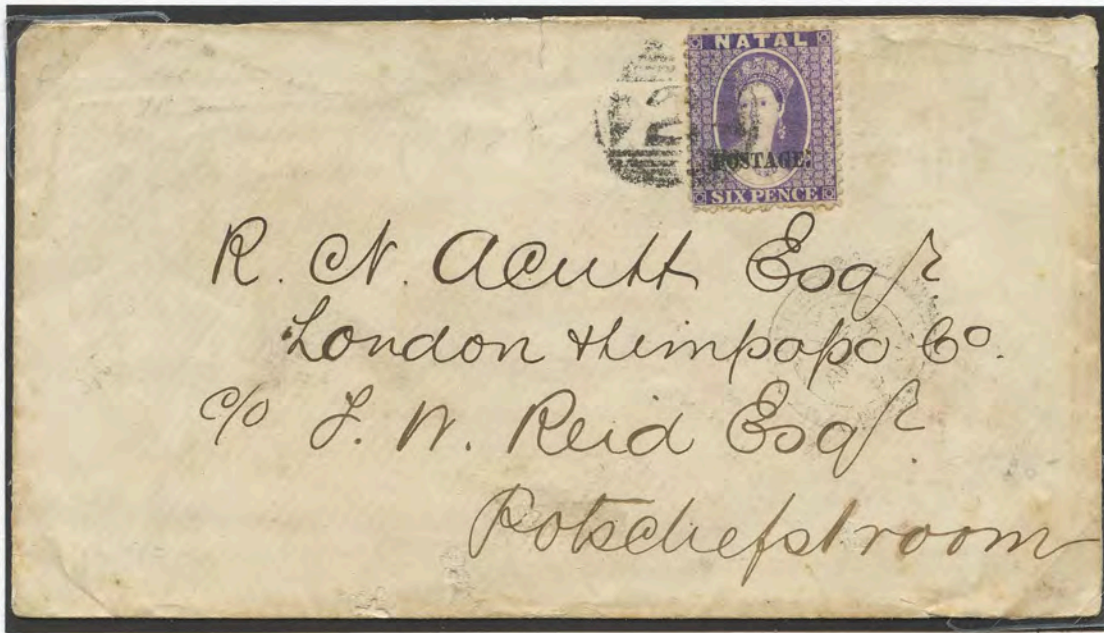 NATAL
2
POSTAGE.
SIX PENCE
R. N. Acutt Esqr
London & Limpopo Co.
c/o J. W. Reid Esqr.
Potschefstroom